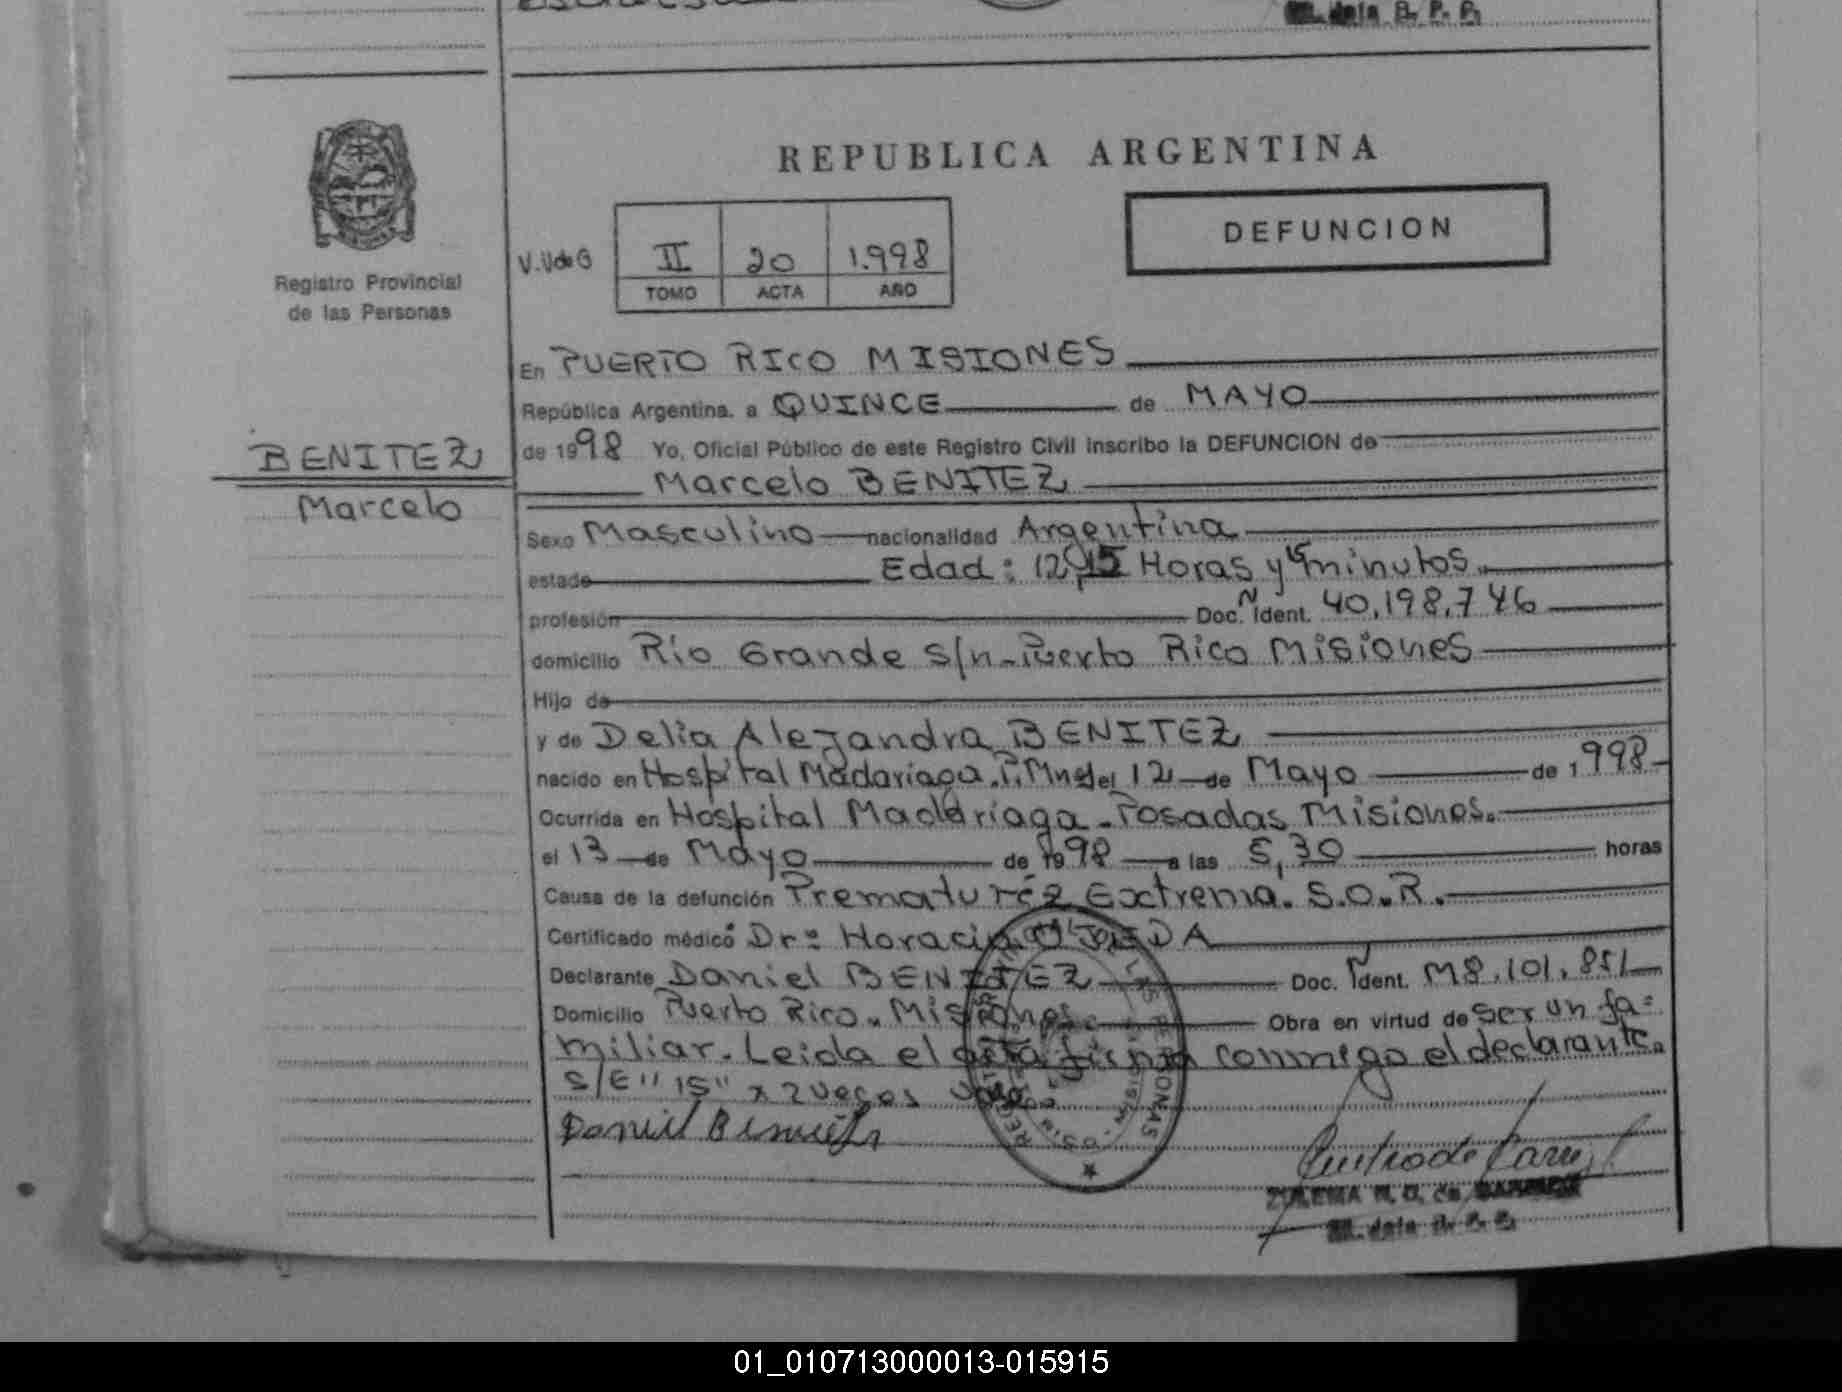 REPUBLICA ARGENTINA
DEFUNCION
V.V de G
II 20 1.998
TOMO ACTA AÑO
Registro Provincial
de las Personas
BENITEZ
Marcelo
En PUERTO RICO MISIONES
República Argentina, a QUINCE de MAYO
de 1998 Yo, Oficial Público de este Registro Civil inscribo la DEFUNCION de
Marcelo BENITEZ
Sexo Masculino nacionalidad Argentina
estado Edad: 12 Horas y 15 minutos.
profesión Doc. Nº Ident. 40.198.746
domicilio Río Grande s/n-Puerto Rico Misiones
Hijo de
y de Delia Alejandra BENITEZ
nacido en Hospital Madariaga. P. Mnes el 12 de Mayo de 1998
Ocurrida en Hospital Madariaga-Posadas Misiones.
el 13 de Mayo de 1998 a las 5,30 horas
Causa de la defunción Prematuréz Extrema. S.O.R.
Certificado médico Dr: Horacio OJEDA
Declarante Daniel BENITEZ Doc. Ident. M8.101.851
Domicilio Puerto Rico. Misiones Obra en virtud de ser un fa=
miliar. Leida el acta firma conmigo el declarante.
S/E "15" x 2 veces Vale
Daniel Benitez
ZULEMA N. O. de
01_010713000013-015915